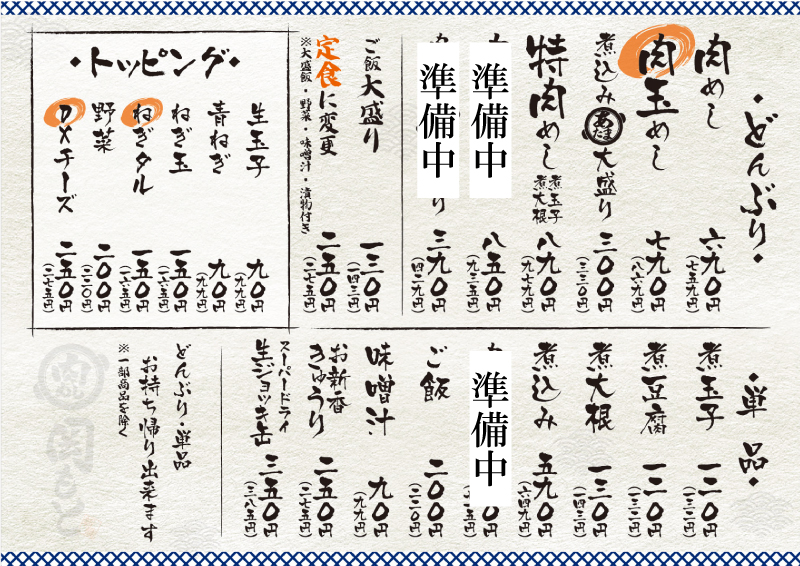 ・どんぶり・
肉めし
六九〇円
(七五九円)
肉玉めし
七九〇円
(八六九円)
煮込みあたま大盛り
三〇〇円
(三三〇円)
特肉めし
煮玉子
煮大根
八九〇円
(九七九円)
準備中
八五〇円
(九三五円)
準備中
り
三九〇円
(四二九円)
ご飯大盛り
一三〇円
(一四三円)
定食に変更
※大盛飯・野菜・味噌汁・漬物付き
二五〇円
(二七五円)
・トッピング・
生玉子
九〇円
(九九円)
青ねぎ
九〇円
(九九円)
ねぎ玉
一五〇円
(一六五円)
ねぎタル
一五〇円
(一六五円)
野菜
二〇〇円
(二二〇円)
DXチーズ
二五〇円
(二七五円)
・単品・
煮玉子
一二〇円
(一三二円)
煮豆腐
一二〇円
(一三二円)
煮大根
一三〇円
(一四三円)
煮込み
五九〇円
(六四九円)
準備中
〇円
ご飯
二〇〇円
(二二〇円)
味噌汁
九〇円
(九九円)
お新香
きゅうり
二五〇円
(二七五円)
スーパードライ
生ジョッキ缶
三五〇円
(三八五円)
どんぶり・単品
お持ち帰り出来ます
※一部商品を除く